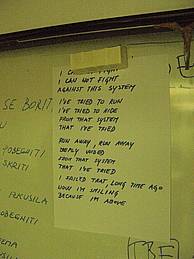 I CAN NOT FIGHT
AGAINST THIS SYSTEM
I'VE TRIED TO RUN
I'VE TRIED TO HIDE
FROM THAT SYSTEM
THAT I'VE TRIED
RUN AWAY, RUN AWAY
DEEPLY
FROM THAT SYSTEM
THAT I'VE TRIED
I FAILED THAT, LONG TIME AGO
NOW I'M SMILING
BECAUSE I'M ABOVE
SE BORIT
U
POBEGNITI
SKRITI
POKUSILA
POBEGNITI